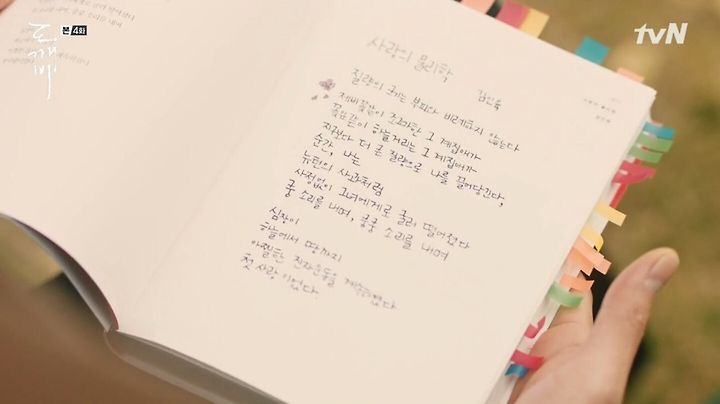 도깨비
본 4화
tvN
사랑의 물리학
김인육
질량의 크기는 부피와 비례하지 않는다
제비꽃같이 조그마한 그 계집애가
꽃잎같이 하늘거리는 그 계집애가
지구보다 더 큰 질량으로 나를 끌어당긴다,
순간, 나는
뉴턴의 사과처럼
사정없이 그녀에게로 굴러 떨어졌다
쿵 소리를 내며, 쿵쿵 소리를 내며
심장이
하늘에서 땅까지
아찔한 진자운동을 계속하였다
첫 사랑 이었다.